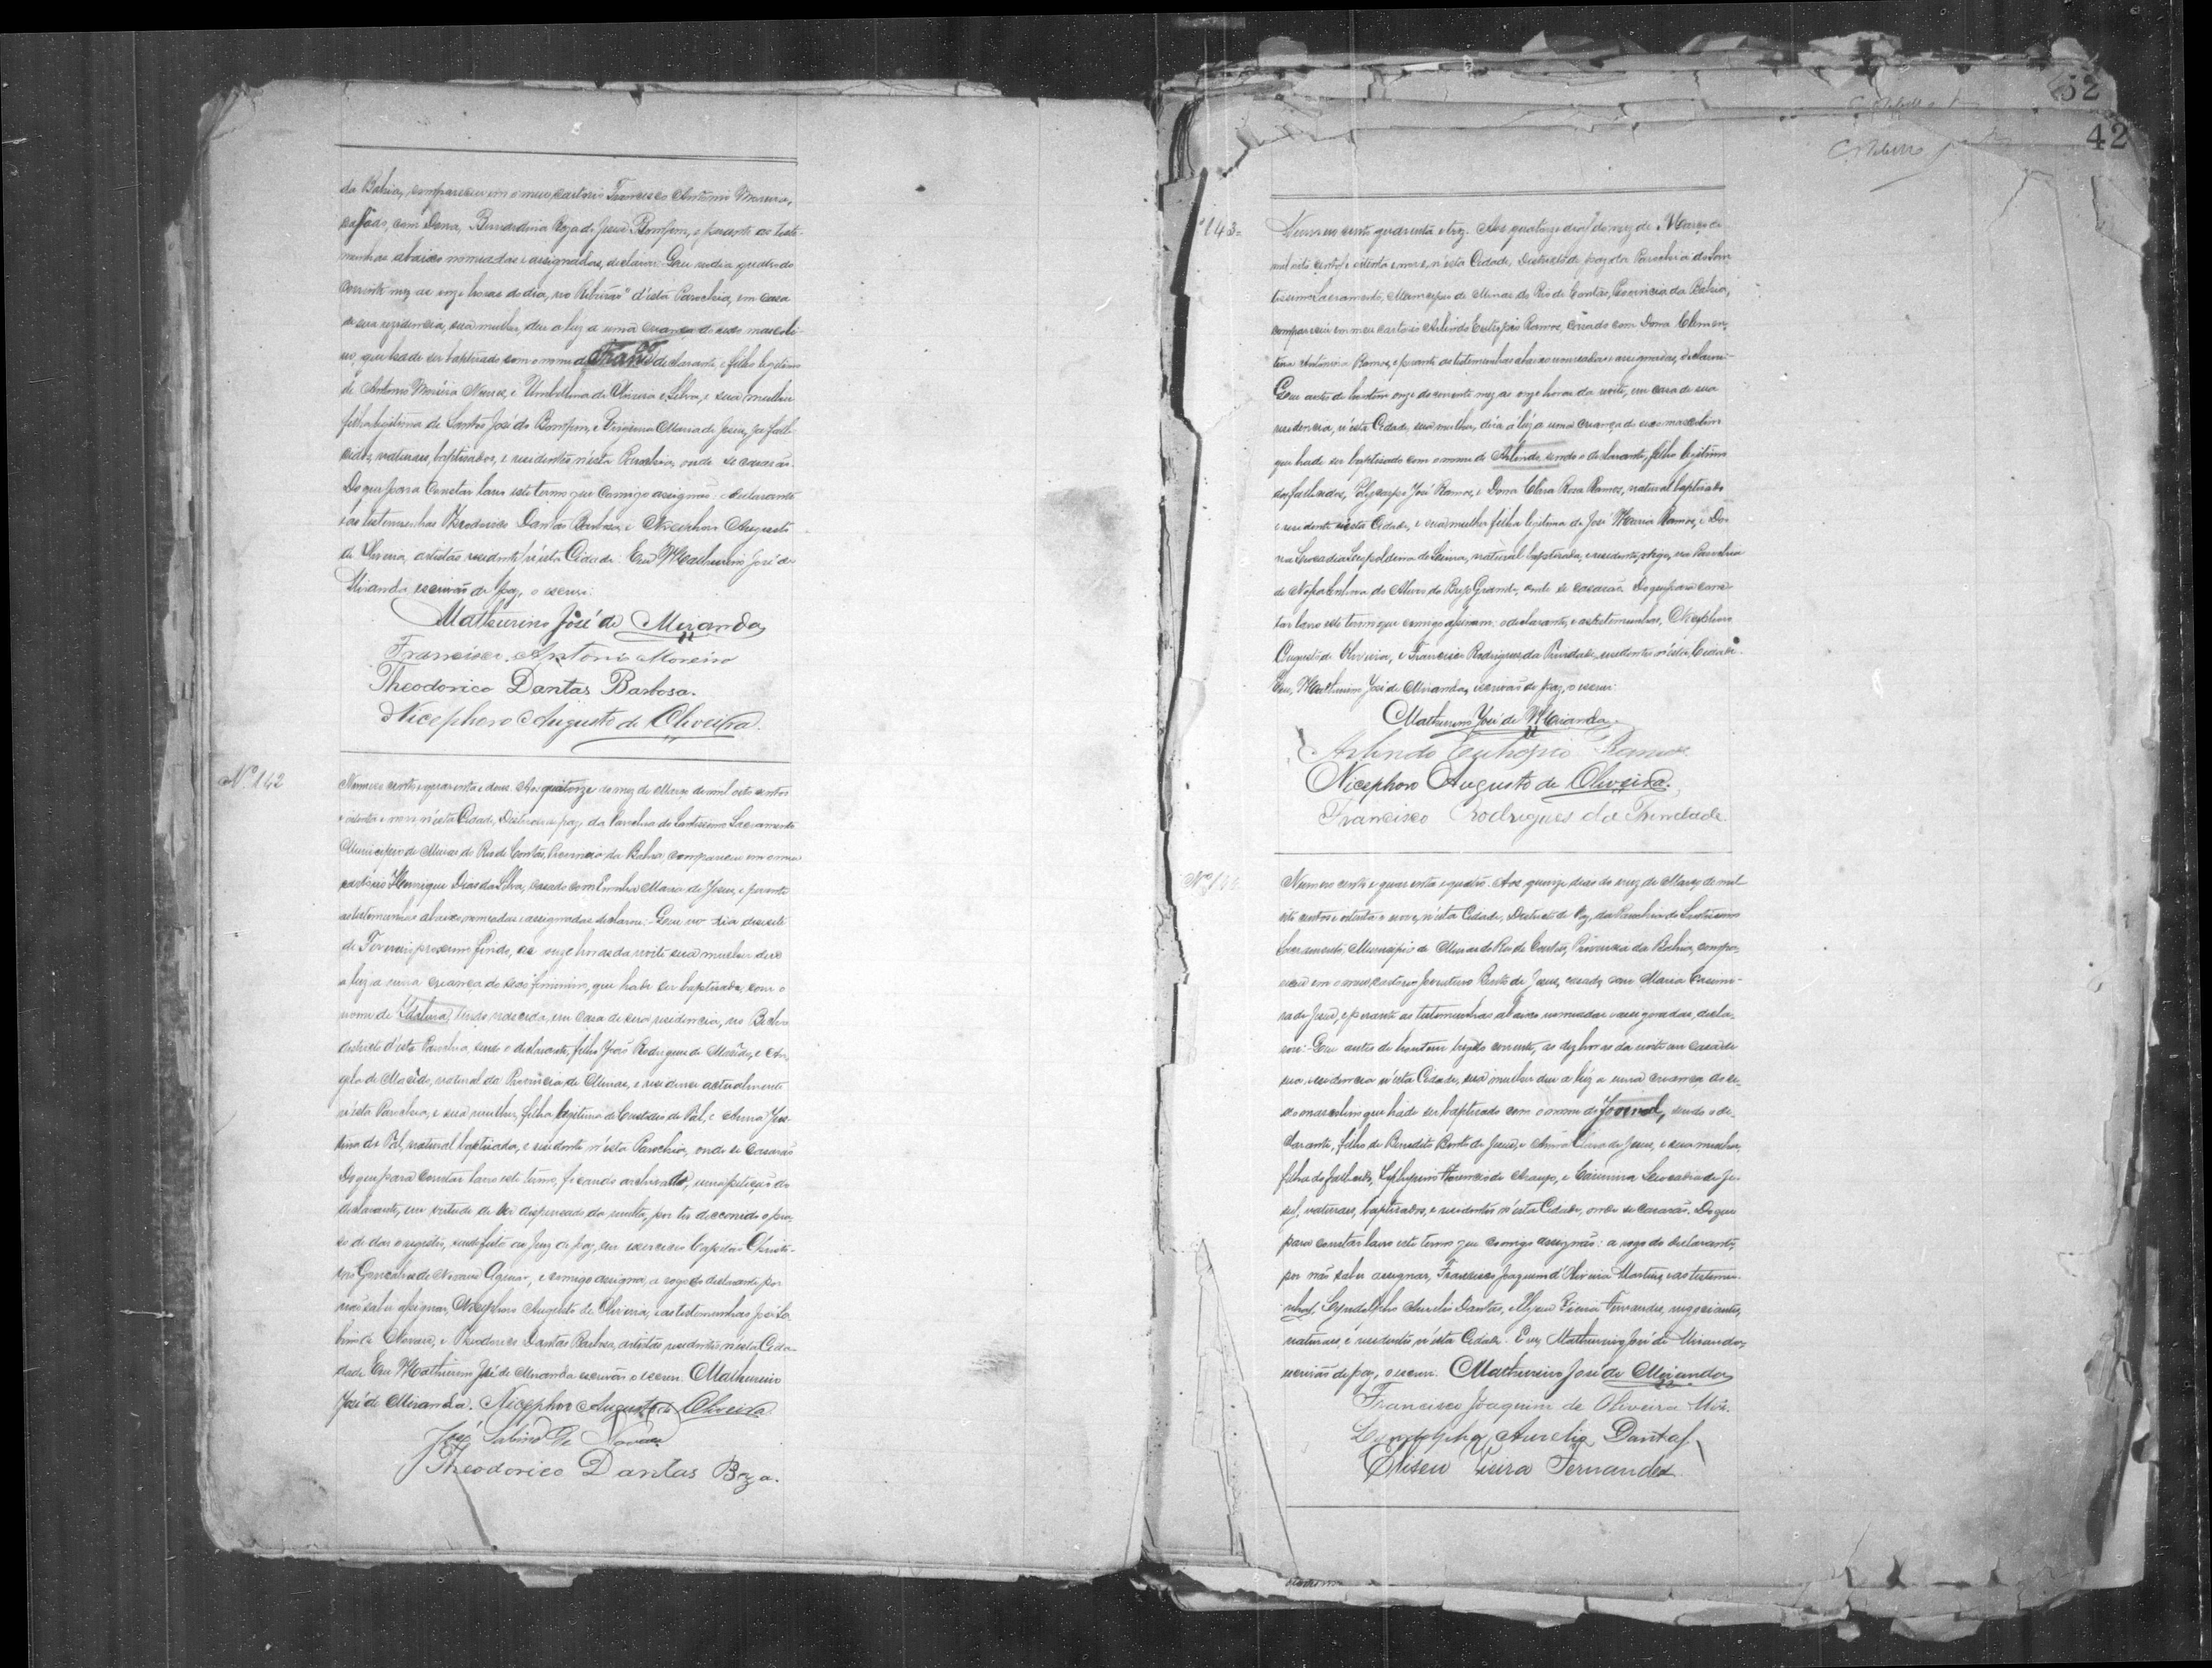 da Bahia, compareceu em o meu cartorio Francisco Antonio Moreira,
casado, com Dona, Bernardina Roza de Jesus Bomfim, e perante as teste-
munhas abaixo nomeadas e assignadas, declarou: Que no dia quatro do
corrente mez as onze horas do dia, no "Ribeirão" d'esta Parochia, em casa
de sua rezidencia, sua mulher, deu a luz a uma criança do sexo masculi-
no, que hade ser baptisado com o nome de declarante, é filho legitimo
de Antonio Moreira Nunes, e Umbellina de Oliveira e Silva, e sua mulher
filha legitima de Santos José do Bomfim, e Virginia Maria de Jesus, ja falle-
cidos, naturaes, baptisados, e residentes n'esta Parochia, onde se casarão.
Do que para constar lavro este termo que comigo assignão o declarante
e as testemunhas Theodorico Dantas Barbosa, e Nicephoro Augusto
de Oliveira, artistas residentes n'esta Cidade. Eu Mathurino José de
Miranda escrivão de paz, o escrevi.
Mathurino José de Miranda
Francisco Antonio Moreira
Theodorico Dantas Barbosa.
Nicephoro Augusto de Oliveira.
Nº 142
Numero cento e quarenta e dous. Aos quatorze do mez de Março de mil oito centos
e oitenta e nove n'esta Cidade, Districto de paz, da Parochia do Santissimo Sacramento
Municipio de Minas do Rio de Contas, Provincia da Bahia, compareceu em o meu
cartorio Henrique Dias da Silva, casado com Maria de Jesus, e perante
as testemunhas abaixo nomeadas e assignadas declarou: Que no dia desesete
de Fevereiro proximo findo, as onze horas da noite sua mulher deu
a luz a uma criança do sexo feminino, que hade ser baptisada, com o
nome de tendo nascida, em casa de sua residencia, no
districto d'esta Parochia, sendo o declarante, filho João Rodrigues de Macêdo, e An-
gela de Macêdo, natural da Provincia de Minas, e residente actualmente
n'esta Parochia, e sua mulher, filha legitima de Custodio de e Anna Jus-
tina de natural baptisada, e residente n'esta Parochia, onde se casarão
Do que para constar lavro este termo, ficando archivado, uma petição do
declarante, em virtude de ser dispensado da multa, por ter decorrido o pra-
so de dar o registro, sendo feito ao Juiz de paz, em exercicio Capitão
Gonçalves de Novaes Aguiar, e comigo assigna, a rogo do declarante por
não saber assignar, Nicephoro Augusto de Oliveira, e as testemunhas José Sa-
bino de Novaes, e Theodorico Dantas Barbosa, artistas, residentes n'esta Cida-
dade Eu Mathurino José de Miranda escrivão o escrevi. Mathurino
José de Miranda. Nicephoro Augusto de Oliveira
José Sabino de Novaes
Theodorico Dantas Bza.
52
42
143
Numero cento quarenta e trez. Aos quatorze dias do mez de Março de
mil oito centos e oitenta e nove, n'esta Cidade, Districto de paz da Parochia do San-
tissimo Sacramento, Municipio de Minas do Rio de Contas, Provincia da Bahia,
compareceu em meu cartorio Arlindo Eutropio Ramos, casado com Dona Clemen-
tina Antonina Ramos, e perante as testemunhas abaixo nomeadas e assignadas, declarou:
Que antes de hontem onze do corrente mez as onze horas da noite, em casa de sua
residencia, n'esta Cidade, sua mulher, dera á luz a uma criança do sexo masculino
que hade ser baptisado com o nome de Arlindo sendo o declarante, filho legitimo
dos fallecidos, Polycarpo José Ramos, e Dona Rosa Ramos, natural baptisado
e residente nesta Cidade, e sua mulher filha legitima de José Maria Ramos, e Do-
na Leocadia Leopoldina de natural baptisada, e residente, na Parochia
de Nossa Senhora do do Brejo Grande, onde se casarão. Do que para cons-
tar lavro este termo que comigo assignam: o declarante, e as testemunhas, Nicephoro
Augusto de Oliveira, e Francisco Rodrigues da Trindade, residentes n'esta Cidade.
Eu, Mathurino José de Miranda, escrivão de paz, o escrevi.
Mathurino José de Miranda.
Arlindo Eutropio Ramos
Nicephoro Augusto de Oliveira.
Francisco Rodrigues da Trindade
Numero cento e quarenta e quatro. Aos quinze dias do mez de Março de mil
oito centos e oitenta e nove, n'esta Cidade, Districto de Paz, da Parochia do Santissimo
Sacramento, Municipio de Minas do Rio de Contas, Provincia da Bahia, compa-
receu em o meu cartorio Bento de Jesus, casado, com Maria Casemi-
ra de Jesus, e perante as testemunhas abaixo nomeadas e assignadas, decla-
rou: Que antes de hontem treze do corrente, as dez horas da noite em casa de
sua residencia n'esta Cidade, sua mulher deu a luz a uma criança do se-
xo masculino que hade ser baptisado com o nome de Juvenal, sendo o de-
clarante, filho de Benedito Bento de Jesus, e Anna Clara de Jesus, e sua mulher,
filha do fallecido, de Araujo, e Casimira Leocadia de Je-
sus, naturaes, baptisados, e residentes n'esta Cidade, onde se casarão. Do que
para constar lavro este termo que comigo assignão: a rogo do declarante,
por não saber assignar, Francisco Joaquim d'Oliveira Martins, e as testemu-
nhas, Lyndolpho Aurelio Dantas, e Elyseu Vieira Fernandes, negociantes,
naturaes, e residentes n'esta Cidade. Eu, Mathurino José de Miranda,
escrivão de paz, o escrevi. Mathurino José de Miranda
Francisco Joaquim de Oliveira
Lyndolpho Aurelio Dantas
Eliseu Vieira Fernandes